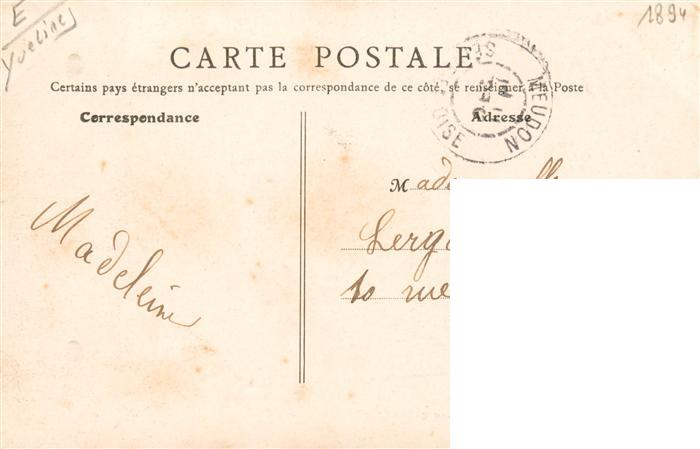 E
Yvelines
1894
CARTE POSTALE
Certains pays étrangers n'acceptant pas la correspondance de ce côté, se renseigner à la Poste
Correspondance
Adresse
MEUDON
OISE
Madeleine
10 rue